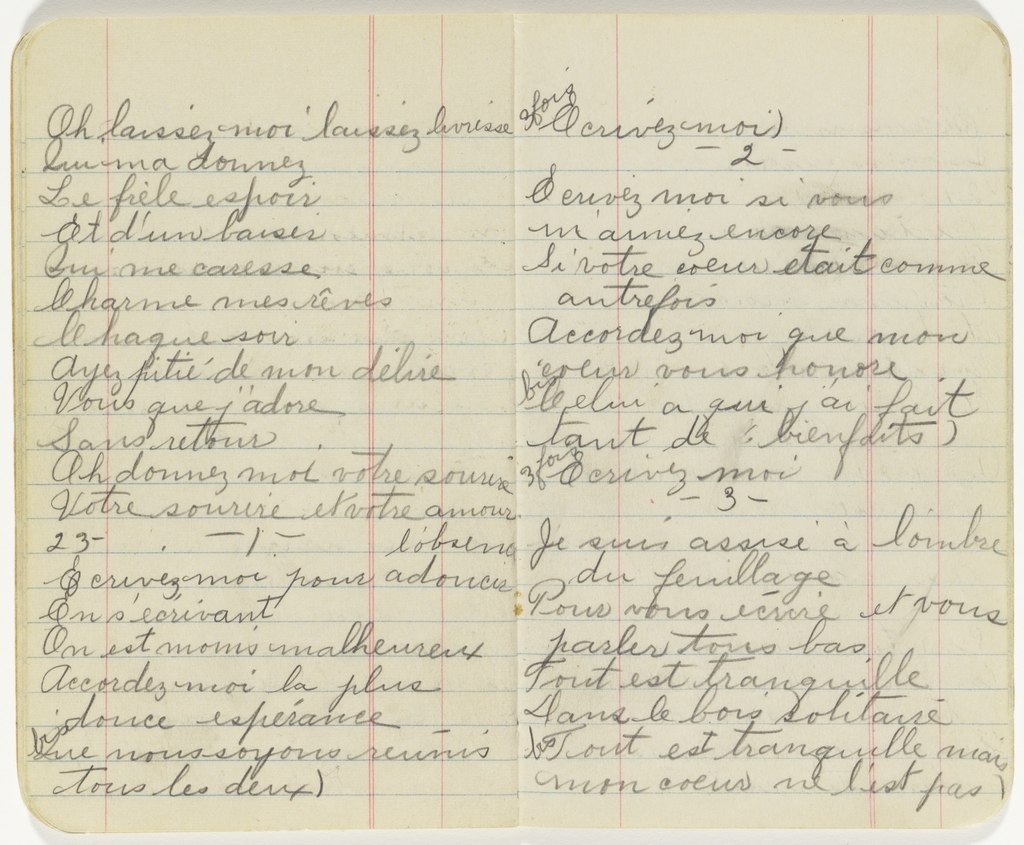 Oh laissez-moi laissez livresse
Qui ma donnez
Le frèle espoir
Et d'un baiser
Qui me caresse
Charme mes rêves
Chaque soir
Ayez pitié de mon délire
Vous que j'adore
Sans retour
Oh donnez moi votre sourire
Votre sourire et votre amour.
23- - 1 - l'absence
Ecrivez-moi pour adoucir
En s'écrivant
On est moins malheureux
Accordez-moi la plus
douce espérance
bis Que nous soyons reunis
tous les deux)
3 fois Ecrivez-moi)
- 2 -
Ecrivez moi si vous
m'aimiez encore
Si votre coeur etait comme
autrefois
Accordez-moi que mon
coeur vous honore
bis Celui a qui j'ai fait
tant de bienfaits)
3 fois Ecrivez moi
- 3 -
Je suis assise à l'ombre
du feuillage
Pour vous écrire et vous
parler tous bas
Tout est tranquille
Dans le bois solitaire
bis Tout est tranquille mais
mon coeur ne l'est pas)